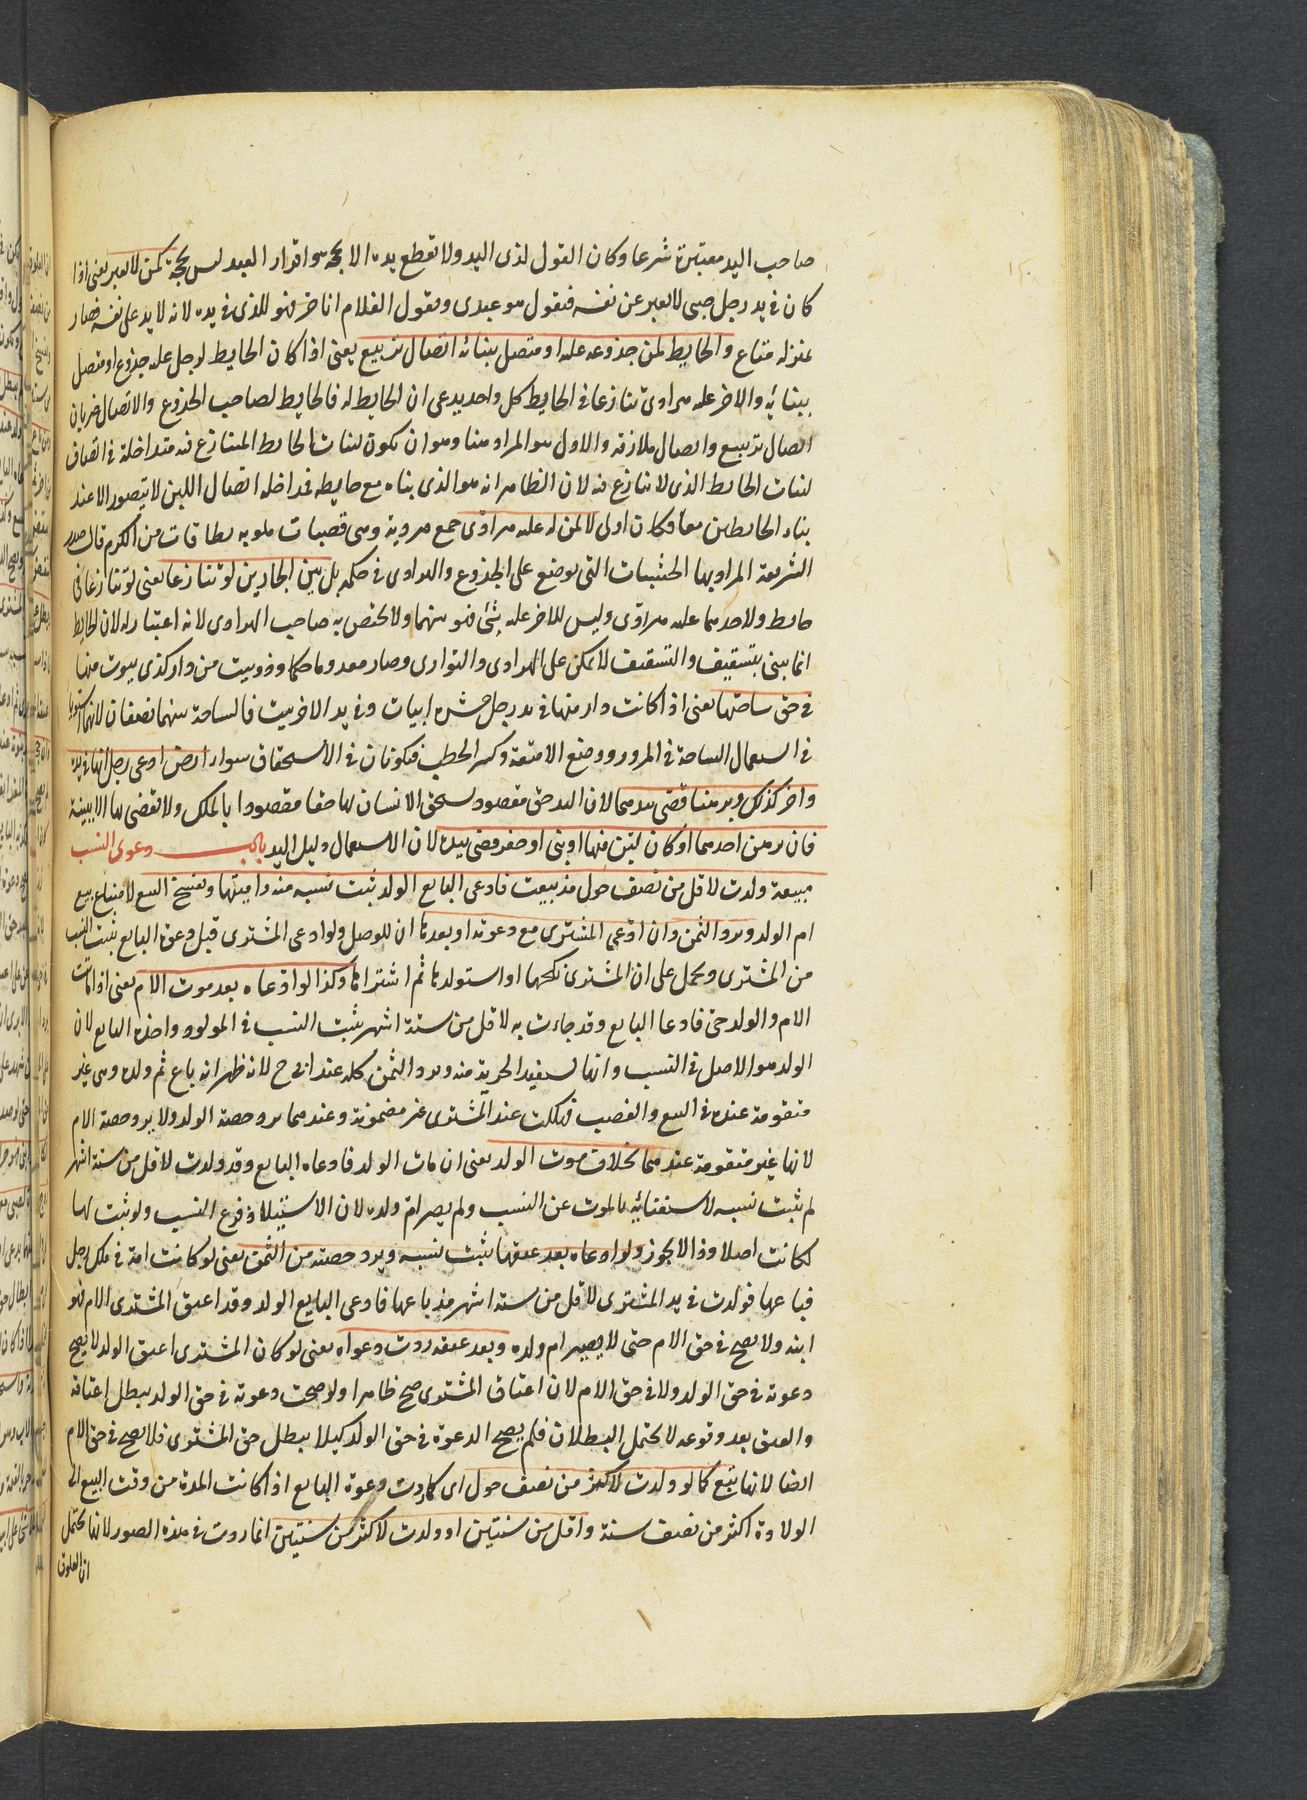 صاحب اليد معتبرة شرعا وكان القول لذى اليد ولا تقطع يده الا بحجة واقرار العبد ليس بحجة كمن لا يعبر يعنى اذا
كان فى يد رجل صبى لا يعبر عن نفسه فيقول هو عبدى ويقول الغلام انا حر فهو للذى فى يده لانه لا يد على نفسه فصار
بمنزلة متاع والحايط لمن جذوعه عليه او متصل ببنائه اتصال تربيع يعنى اذا كان الحايط لرجل عليه جذوع او متصل
ببنائه والاخر عليه هراوى تنازعا فى الحايط كل واحد يدعى ان الحايط له فالحايط لصاحب الجذوع والاتصال ضربان
اتصال تربيع واتصال ملازقة والاول هو المراد هنا وهو ان تكون لبنات الحايط المتنازع فيه متداخلة فى انصاف
لبنات الحايط الذى لا تنازع فيه لان الظاهر انه هو الذى بناه مع حايطه فمداخلة اتصال اللبن لا يتصور الا عند
بناء الحايطين معا فكان اولى لا لمن له عليه هراوى جمع هروية وهى قصبات ملوية بطاقات من الكرم قال صدر
الشريعة المراد بها الخشبات التى توضع على الجذوع والهراوى فى حكمه بل بين الجارين لو تنازعا يعنى لو تنازعا فى
حايط ولاحدهما عليه هراوى وليس للاخر عليه شئ فهو بينهما ولا يختص به صاحب الهراوى لانه اعتبار له لان الحايط
انما يبنى بتسقيف والتسقيف لا يمكن على الهراوى والبوارى وصار معدوما حكما وذو بيت من دار كذى بيوت منها
فى حق ساحتها يعنى اذا كانت دار منها فى يد رجل عشرة ابيات وفى يد الاخر بيت فالساحة بينهما نصفان لانهما استويا
فى استعمال الساحة فى المرور ووضع الامتعة وكسر الحطب فيكونان فى الاستحقاق سواء ارض ادعى رجل انها فى يده
واخر كذلك وبرهنا قضى بيدهما لان اليد حق مقصود يستحق الانسان لها حقا مقصودا بالملك ولا تقضى لها الا ببينة
فان برهن احدهما او كان لبن فيها او بنى او حفر قضى بيده لان الاستعمال دليل اليد باب دعوى النسب
مبيعة ولدت لاقل من نصف حول مذ بيعت فادعى البايع الولد ثبت نسبه منه واميتها ويفسخ البيع لامتناع بيع
ام الولد ويرد الثمن وان ادعى المشترى مع دعوته او بعدها ان للوصل ولو ادعى المشترى قبل دعوة البايع يثبت النسب
من المشترى ويحمل على ان المشترى نكحها او استولدها ثم اشتراها وكذا لو ادعاه بعد موت الام يعنى اذا ماتت
الام والولد حى فادعا البايع وقد جاءت به لاقل من ستة اشهر يثبت النسب فى المولود واخذه البايع لان
الولد هو الاصل فى النسب وانها تستفيد الحرية منه ويرد الثمن كله عند ابى ح لانه ظهر انه باع ام ولده وهى غير
متقومة عنده فى البيع والغصب فهلكت عند المشترى غير مضمونة وعندهما يرد حصة الولد ولا يرد حصة الام
لانها غير متقومة عندهما بخلاف موت الولد يعنى ان مات الولد فادعاه البايع وقد ولدت لاقل من ستة اشهر
لم يثبت نسبه لاستغنائه بالموت عن النسب ولم يصر ام ولده لان الاستيلاد فرع النسب ولو ثبت لها
لكانت اصلا وذا لا يجوز ولو ادعاه بعد عتقها يثبت نسبه ويرد حصته من الثمن يعنى لو كانت امة فى ملك رجل
فباعها فولدت فى يد المشترى لاقل من ستة اشهر مذ باعها فادعى البايع الولد وقد اعتق المشترى الام فهو
ابنه ولا يصح فى حق الام حتى لا يصير ام ولده وبعد عتقه ردت دعواه يعنى لو كان المشترى اعتق الولد لا يصح
دعوته فى حق الولد ولا فى حق الام لان اعتاق المشترى صح ظاهرا ولو صحت دعوته فى حق الولد يبطل اعتاقه
والعتق بعد وقوعه لا يحتمل البطلان فلم يصح الدعوة فى حق الولد كيلا يبطل حق المشترى فلا يصح فى حق الام
ايضا لانها تبع كما لو ولدت لاكثر من نصف حول اى كما ردت دعوة البايع اذا كانت المدة من وقت البيع الى
الولادة اكثر من نصف سنة واقل من سنتين او ولدت لاكثر من سنتين انما ردت فى هذه الصور لانها يحتمل
ان العلوق